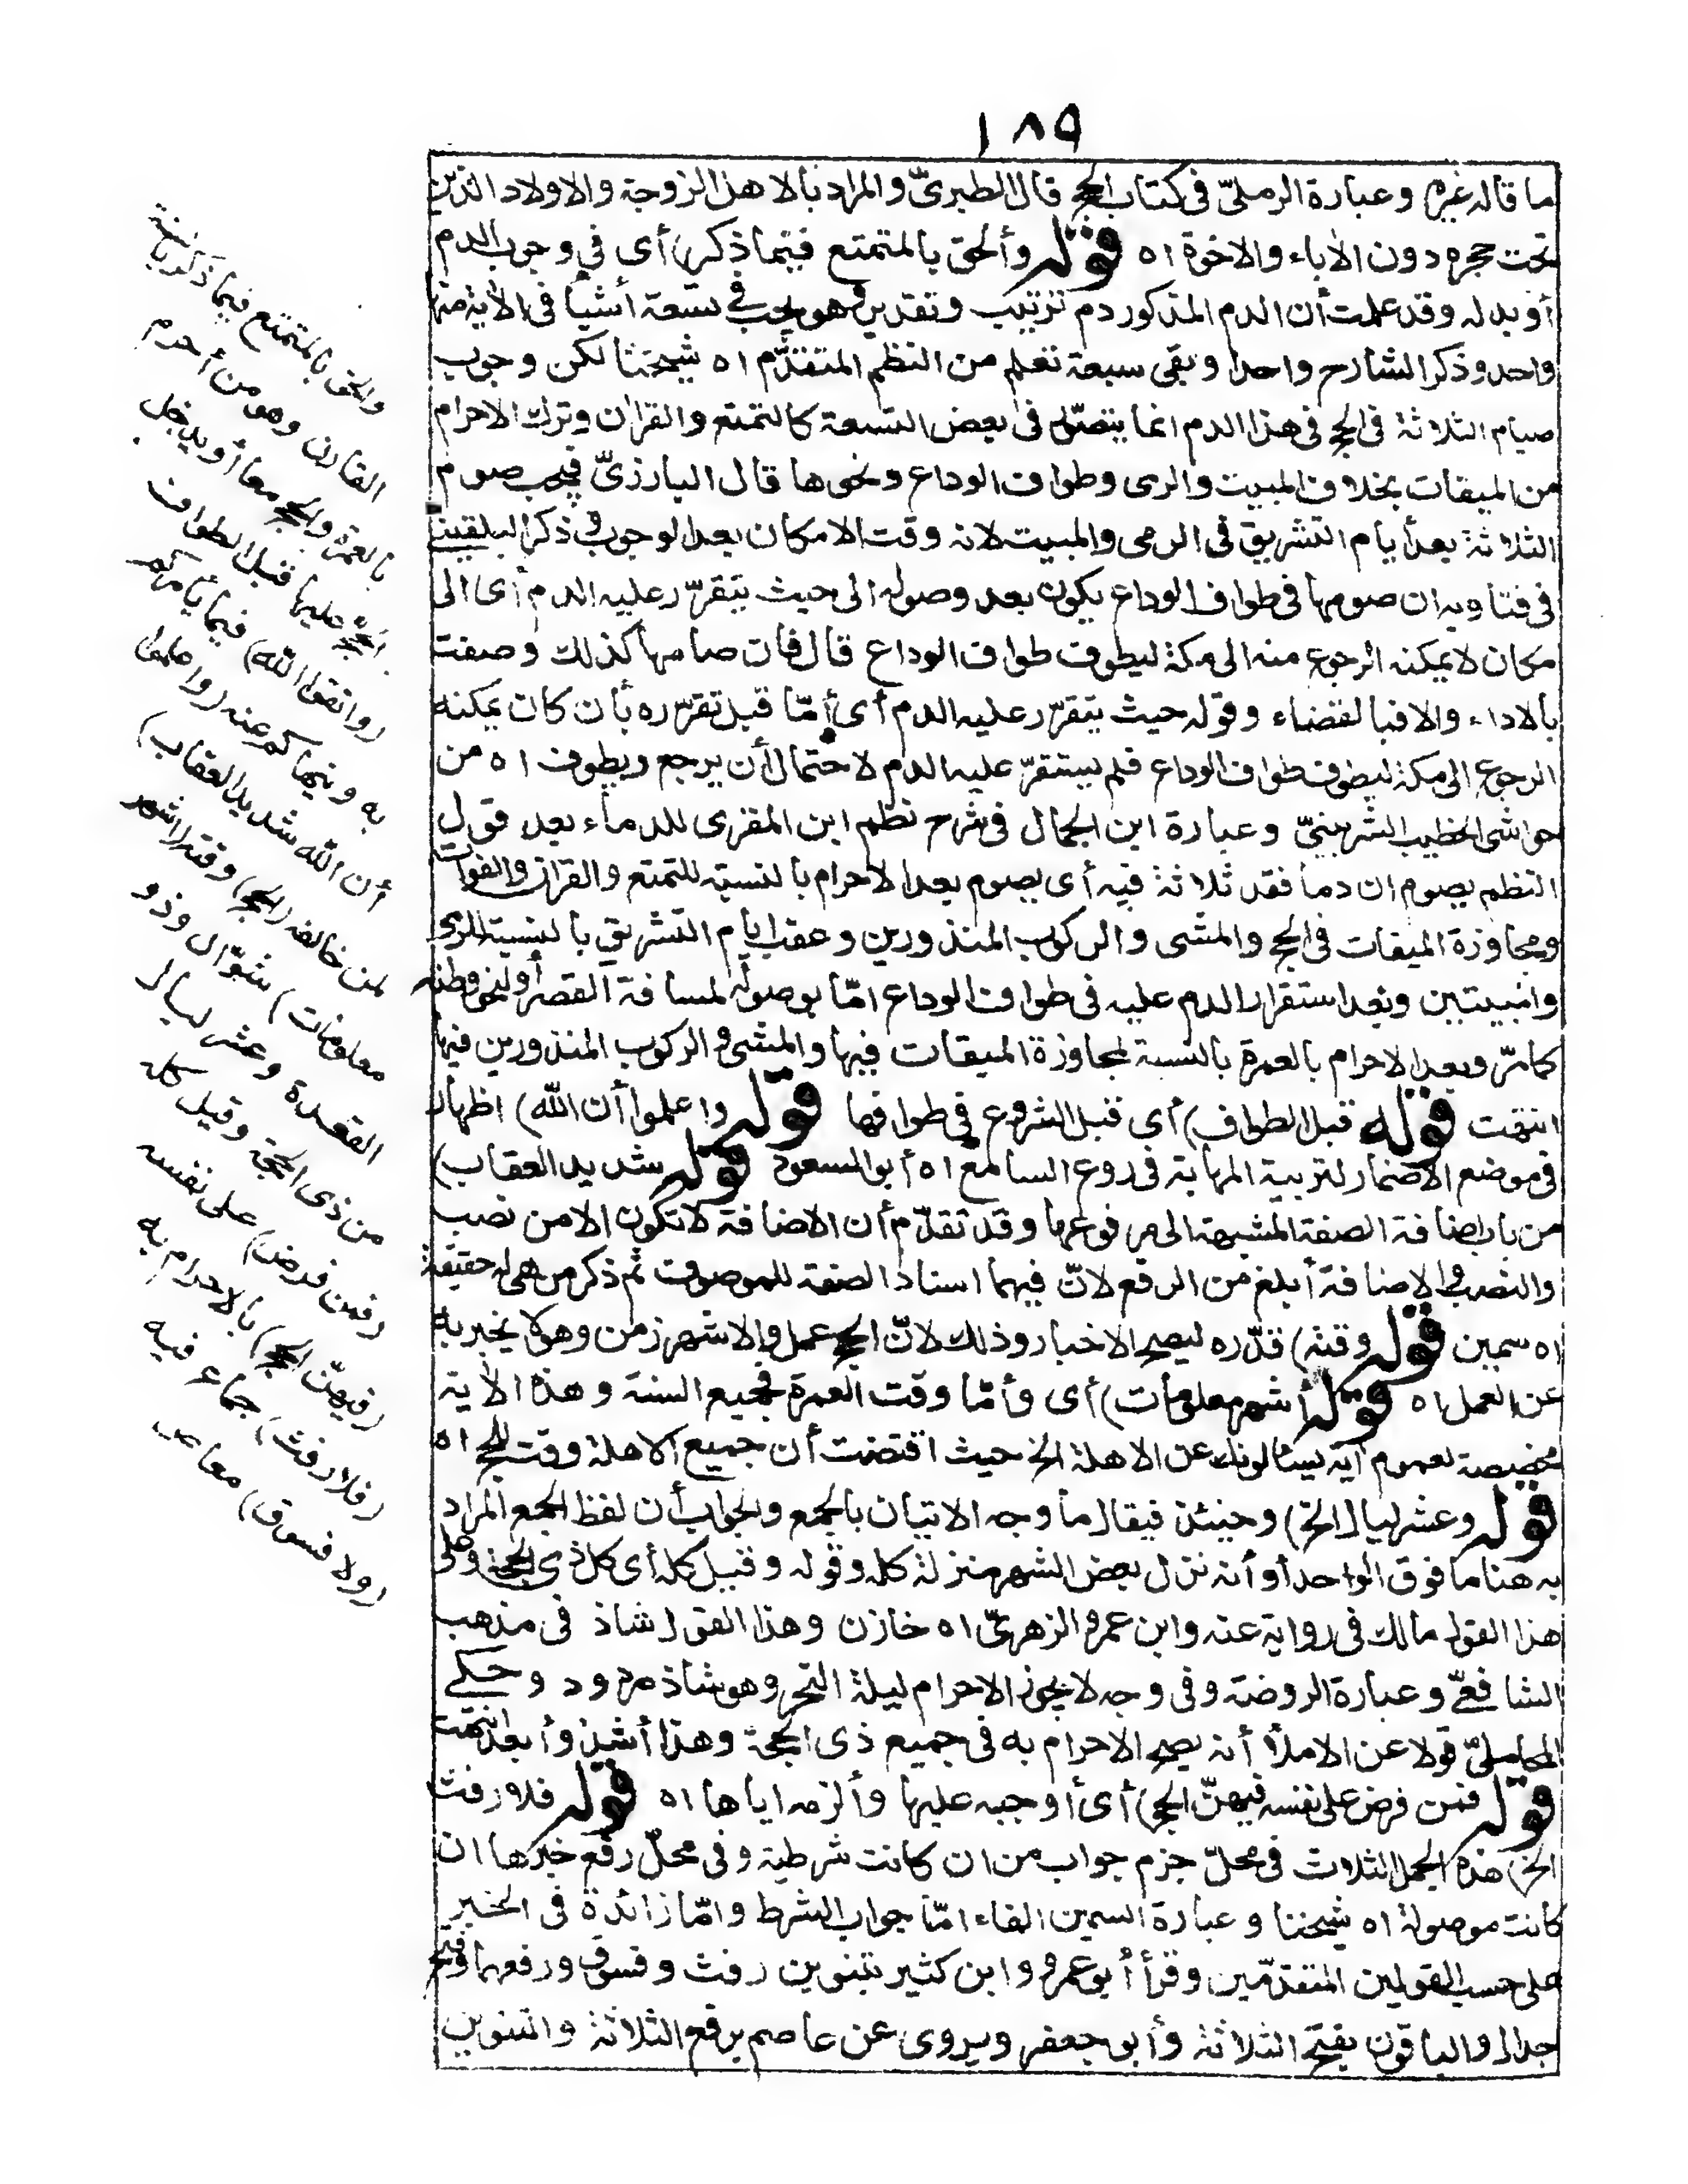 ١٨٩
ما قاله غيره وعبارة الرملىّ فى كتاب الحج قال الطبرىّ والمراد بالاهل الزوجة والاولاد الذين
تحت حجره دون الأباء والاخوة اه قوله وألحق بالمتمتع فيما ذكر) أى فى وجوب الدم
أو بدله وقد علمت أن الدم المذكور دم ترتيب وتقدير وهو يجب فى تسعة أشيأ فى الأية منها
واحد وذكر الشارح واحدا وبقى سبعة تعلم من النظم المتقدّم اه شيخنا لكن وجوب
صيام الثلاثة فى الحج فى هذا الدم انما يتصوّر فى بعض التسعة كالتمتع والقران وترك الاحرام
من الميقات بخلاف المبيت والرمى وطواف الوداع ونحوها قال البارزىّ فيجب صوم
الثلاثة بعد أيام التشريق فى الرمى والمبيت لانه وقت الامكان بعد الوجوب وذكر البلقينى
فى فتاويه ان صومها فى طواف الوداع يكون بعد وصوله الى حيث يتقرّر عليه الدم أى الى
مكان لا يمكنه الرجوع منه الى مكة ليطوف طواف الوداع قال فان صامها كذلك وصفت
بالاداء والا فبالقضاء وقوله حيث يتقرّر عليه الدم أى أمّا قبل تقرّره بأن كان يمكنه
الرجوع الى مكة ليطوف طواف الوداع فلم يستقرّ عليه الدم لاحتمال أن يرجع ويطوف اه من
حواشى الخطيب الشربينىّ وعبارة ابن الجمال فى شرح نظم ابن المقرى للدماء بعد قول
النظم يصوم ان دما فقد ثلاثة فيه أى يصوم بعد الاحرام بالنسبة للتمتع والقران والفوات
ومجاوزة الميقات فى الحج والمشى والركوب المنذورين وعقب أيام التشريق بالنسبة للرمى
والمبيتين وبعد استقرار الدم عليه فى طواف الوداع امّا بوصوله لمسافة القصر أو لنحو وطنه
كما مرّ وبعد الاحرام بالعمرة بالنسبة لمجاوزة الميقات فيها والمشى والركوب المنذورين فيها
انتهت قوله قبل الطواف) أى قبل الشروع فى طوافها قوله واعلموا أن الله) اظهار
فى موضع الاضمار لتربية المهابة فى روع السامع اه أبو السعود قوله شديد العقاب)
من باب اضافة الصفة المشبهة الى مرفوعها وقد تقدّم أن الاضافة لا تكون الا من نصب
والنصب والاضافة أبلغ من الرفع لانّ فيهما اسناد الصفة للموصوف ثم ذكر من هى له حقيقة
اه سمين قوله وقته) قدّره ليصح الاخبار وذلك لانّ الحج عمل والاشهر زمن وهو لا يخبر به
عن العمل اه قوله أشهر معلومات) أى وأمّا وقت العمرة فجميع السنة وهذه الأية
مخصصة لعموم أية يسئالونك عن الاهلة الخ حيث اقتضت أن جميع الاهلة وقت للحج اه
قوله وعشر ليال الخ) وحينئذ فيقال ما وجه الاتيان بالجمع والجواب أن لفظ الجمع المراد
به هنا ما فوق الواحد أو أنه نزل بعض الشهر منزلة كله وقوله وقيل كله أى كل ذى الحجة وعلى
هذا القول مالك فى رواية عنه وابن عمر والزهرىّ اه خازن وهذا القول شاذ فى مذهب
الشافعىّ وعبارة الروضة وفى وجه لا يجوز الاحرام ليلة النحر وهو شاذ مردود وحكى
المحاملىّ قولا عن الاملأ أنه يصح الاحرام به فى جميع ذى الحجة وهذا أشذ وأبعد انتهت
قوله فمن فرض على نفسه فيهنّ الحج) أى أوجبه عليها وألزمه اياها اه قوله فلا رفث
الخ) هذه الجمل الثلاث فى محلّ جزم جواب من ان كانت شرطية وفى محلّ رفع خبرها ان
كانت موصولة اه شيخنا وعبارة السمين الفاء امّا جواب الشرط وامّا زائدة فى الخبر
على حسب القولين المتقدّمين وقرأ أبو عمرو وابن كثير بتنوين رفث وفسوق ورفعهما وفتح
جدال والباقون بفتح الثلاثة وأبو جعفر ويروى عن عاصم برفع الثلاثة والتنوين
والحق بالمتمتع فيما ذكر بالسنة
القارن وهو من أحرم
بالعمرة والحج معا أو يدخل
الحجّ عليها قبل الطواف
(واتقوا الله) فيما يأمركم
به وينهاكم عنه (واعلموا
أن الله شديد العقاب)
لمن خالفه (الحج) وقته (اشهر
معلومات) شوّال وذو
القعدة وعشر ليال
من ذى الحجة وقيل كله
(فمن فرض) على نفسه
(فيهنّ الحج) بالاحرام به
(فلا رفث) جماع فيه
(ولا فسوق) معاص